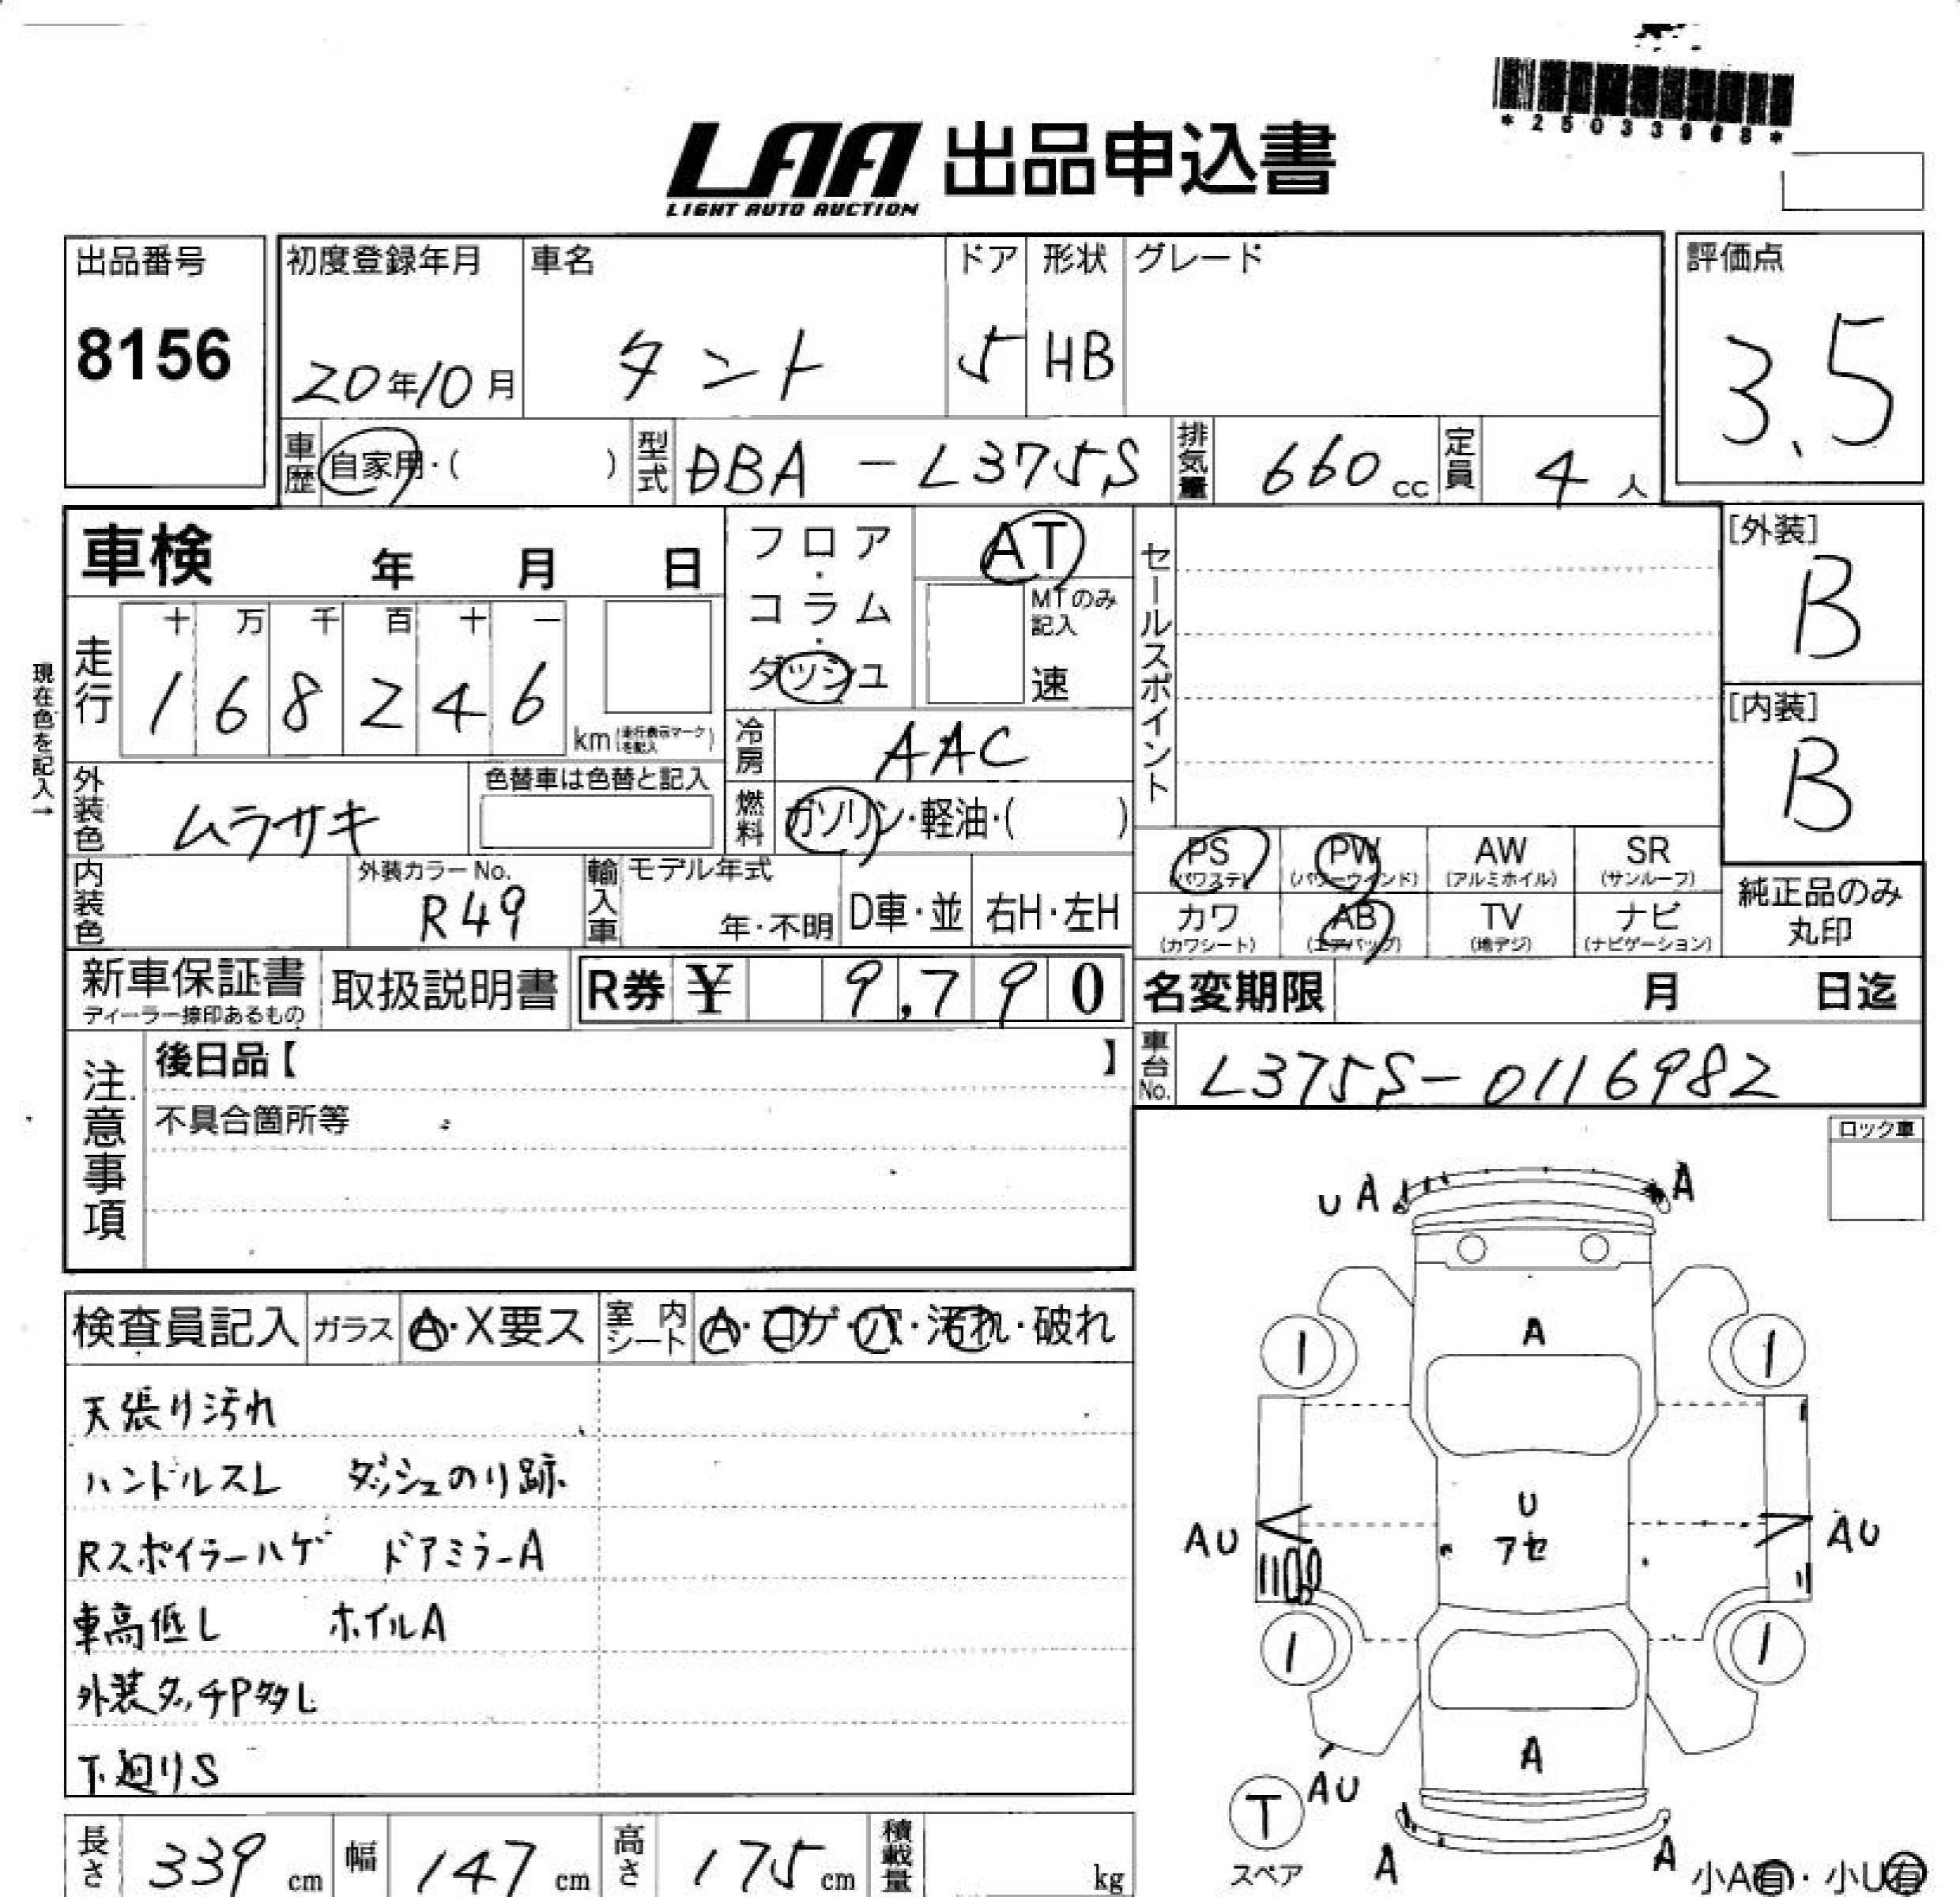 LAA 出品申込書
LIGHT AUTO AUCTION
出品番号
8156
初度登録年月
20年10月
車名
タント
ドア
5
形状
HB
グレード
評価点
3.5
車歴
自家用・( )
型式
DBA-L375S
排気量
660cc
定員
4人
車検 年 月 日
現在色を記入→
走行
十 万 千 百 十 一
1 6 8 2 4 6
km(走行表示マークを記入)
フロア・コラム・ダッシュ
AT
MTのみ記入
速
セールスポイント
[外装]
B
[内装]
B
冷房
AAC
外装色
ムラサキ
色替車は色替と記入
燃料
ガソリン・軽油・( )
内装色
外装カラーNo.
R49
輸入車
モデル年式
年・不明
D車・並
右H・左H
PS
(パワステ)
PW
(パワーウインド)
AW
(アルミホイル)
SR
(サンルーフ)
カワ
(カワシート)
AB
(エアバッグ)
TV
(地デジ)
ナビ
(ナビゲーション)
純正品のみ
丸印
新車保証書
ディーラー捺印あるもの
取扱説明書
R券 ¥ 9,790
名変期限 月 日迄
車台No.
L375S-0116982
注意事項
後日品【 】
不具合箇所等
ロック車
検査員記入
ガラス
A・X要ス
室内シート
A・コゲ・穴・汚れ・破れ
天張り汚れ
ハンドルスレ ダッシュのり跡
Rスポイラーハゲ ドアミラーA
車高低し ホイルA
外装タッチP多し
下廻りS
U A
A
A
1
1
U
アセ
AU
AU
1
1
A
AU
T
スペア
A
A
小A有・小U有
長さ
339cm
幅
147cm
高さ
175cm
積載量
kg